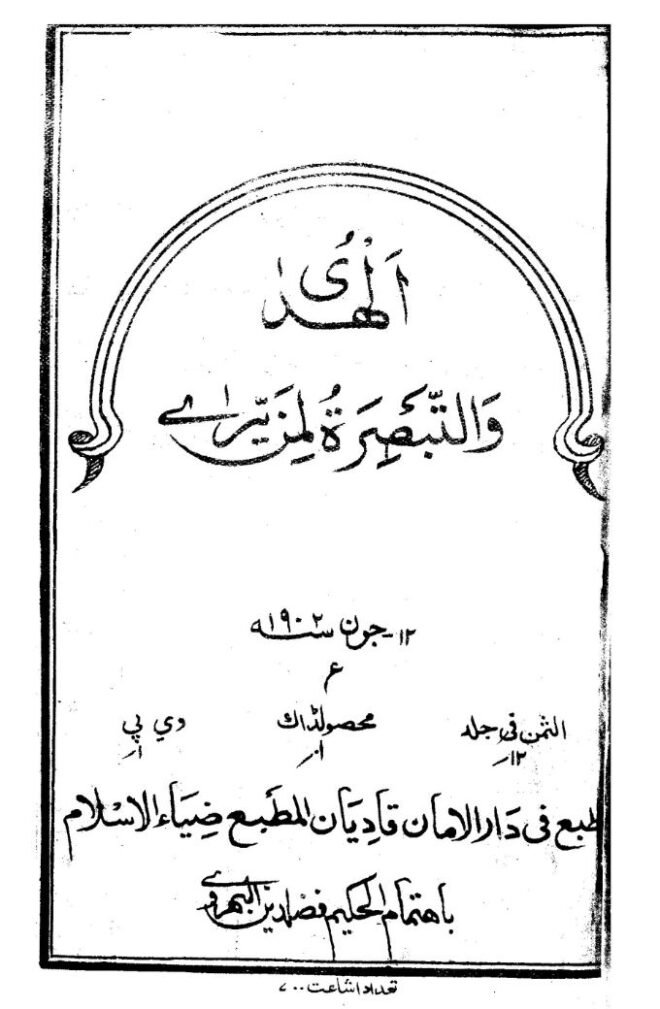 اَلْهُدٰى
وَالتَّبْصِرَةُ لِمَنْ يَّرٰے
۱۲-جون سنہ ۱۹۰۲
ء
الثمن فی جلد محصولڈاک وی پی
۱۲؍ ۱؍ ۱؍
طبع فی دَار الامان قادِیَان المَطبَع ضِیَاء الاِسْلام
باهتمام الحکیم فضلدین البھیروی
تعداد اشاعت ۷۰۰